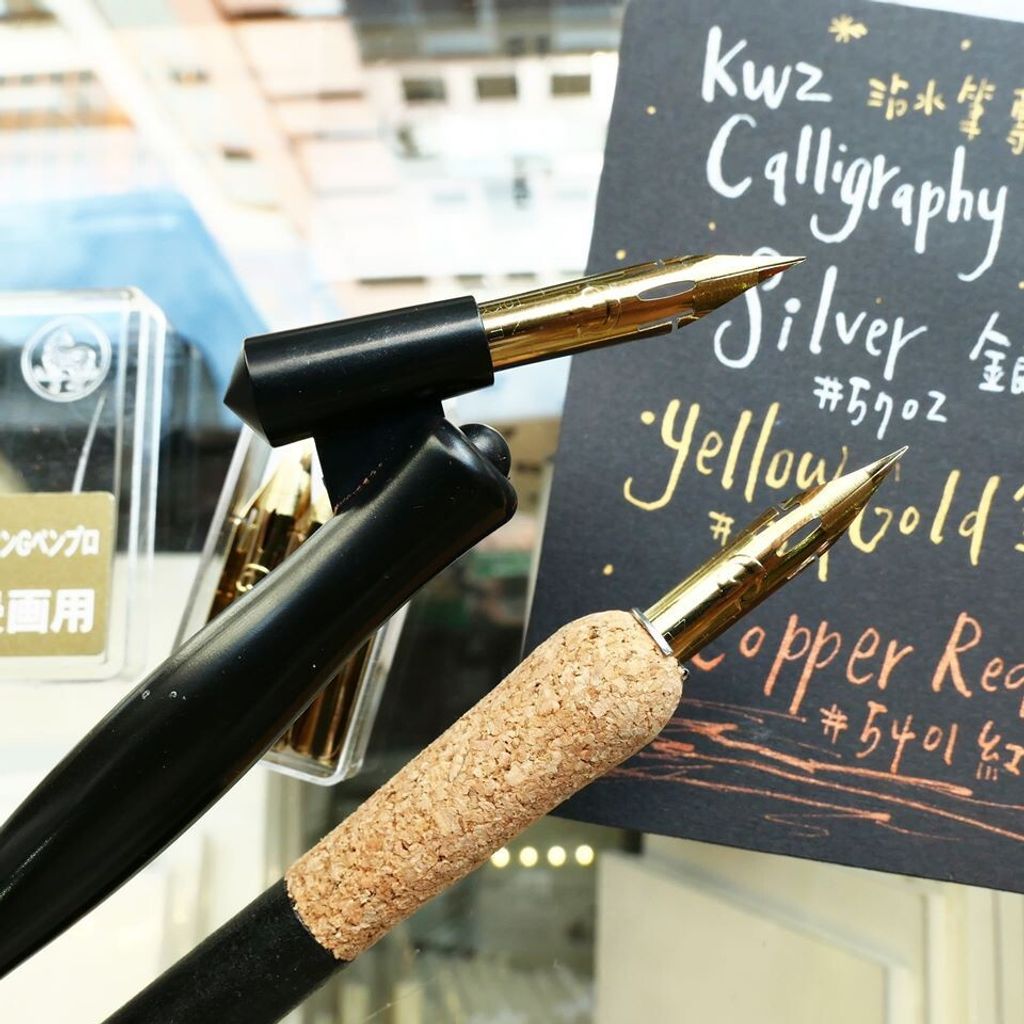 Kwz 沾水筆專
Calligraphy
Silver 銀
#5702
Yellow Gold
#
Copper Red
#5401 紅
ンGペンプロ
画用